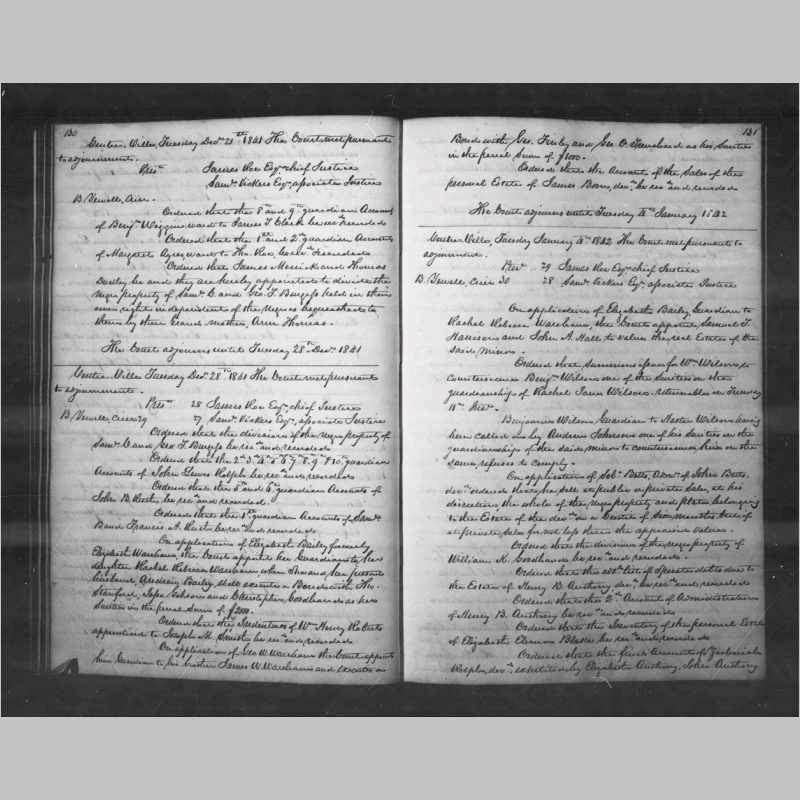 130
Tuesday Decr 21st 1841 The Court met pursuant
to adjournment.
Prest James Roe Esqr chief Justice
Saml Vickers Esqr associate Justice
B. Newell, Crier.
Ordered that the 8th and 9th guardian Accounts
of Benjn Wiggins ward to James T. Clark be recd and recorded
Ordered that the 1st and 2nd guardian Accounts
of Margaret ward to Thos Roe, be recd & recorded
Ordered that James Merrick and Thomas
be and they are hereby appointed to divide the
negro property of Saml C. and Geo. T. Burgess held in their
own right independent of the Negroes bequeathed to
them by their Grand mother, Ann Thomas.
The Court adjourns until Tuesday 28th Decr 1841
Tuesday Decr 28th 1841 The Court met pursuant
to adjournment.
Prest 28 James Roe Esqr chief Justice
B. Newell, Crier 29 27 Saml Vickers Esqr associate Justice
Ordered that the division of the negro property of
Saml C. and Geo. T. Burgess be recd and recorded
Ordered that the 2nd 3d 4th 5th 6th 7th 8th 9th & 10th guardian
Accounts of John Lewis Ralph be recd and recorded
Ordered that the 5th and 6th guardian Accounts of
John B. be recd and recorded.
Ordered that the 1st guardian Accounts of Saml
B. and Francis A. be recd and recorded
On application of Elizabeth Bailey formerly
Elizabeth Wareham, the Court appoint her Guardian to her
daughter Rachel Rebecca Wareham when she and her present
husband, Andrew Bailey shall execute a Bond with Thos
and Christopher Goodhand as her
sureties in the penal sum of $200.
Ordered that the Indentures of Wm Henry Roberts
apprenticed to Joseph M. be recd and recorded
On application of Geo W. Wareham the Court appoint
him Guardian to his brother James W. Wareham and executes a
131
Bond with Geo. and Geo. as his Sureties
in the penal sum of $600.
Ordered that the Account of the Sales of the
personal Estate of James Boon, decd be recd and recorded
The Court adjourns until Tuesday 4th January 1842
Tuesday January 4th 1842 The Court met pursuant to
adjournment.
Prest 29 James Roe Esqr chief Justice
B. Newell, Crier 30 28 Saml Vickers Esqr associate Justice
On application of Elizabeth Bailey Guardian to
Rachel Rebecca Wareham, the Court appoint Samuel T.
Harrison and John A. Hall to value the real Estate of the
said minor.
Ordered that summons issue for Wm Wilson to
Countersecure Benjn Wilson one of the sureties on the
guardianship of Rachel Jane Wilson. returnable on Tuesday
11th Inst.
Benjamin Wilson, Guardian to Wilson having
been called in by Andrew Johnson one of his Sureties on the
guardianship of the said minor to countersecure him on the
same refuses to comply.
On application of Betts, Admr of John Betts
decd ordered that he sell at public or private Sale, at his
discretion, the whole of the negro property and plate belonging
to the Estate of the decd on a Credit of six months but if
at private Sale for not less than the appraised values.
Ordered that the division of the negro property of
William H. Goodhand be recd and recorded.
Ordered that the addl List of sperate debts due to
the Estate of Henry B. Anthony, decd be recd and recorded
Ordered that the 2nd Account of Administration
of Henry B. Anthony be recd and recorded
Ordered that the Inventory of the personal Estate
of Elizabeth be recd and recorded
Ordered that the final Account of
Ralph, decd exhibited by Elizabeth Anthony, John Anthony